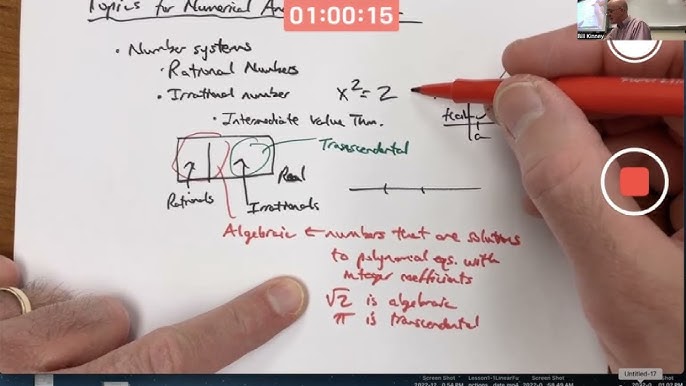 Topics for Numerical
01:00:15
Bill Kinney
• Number systems
• Rational Numbers
• Irrational number
x² = 2
• Intermediate Value Thm.
f(a)
a
Transcendental
Real
Rationals
Irrationals
Algebraic ← numbers that are solutions
to polynomial eqs. with
integer coefficients
√2 is algebraic
π is transcendental
Untitled-17
Screen Shot
Lesson1-1LinearFu
Screen Shot